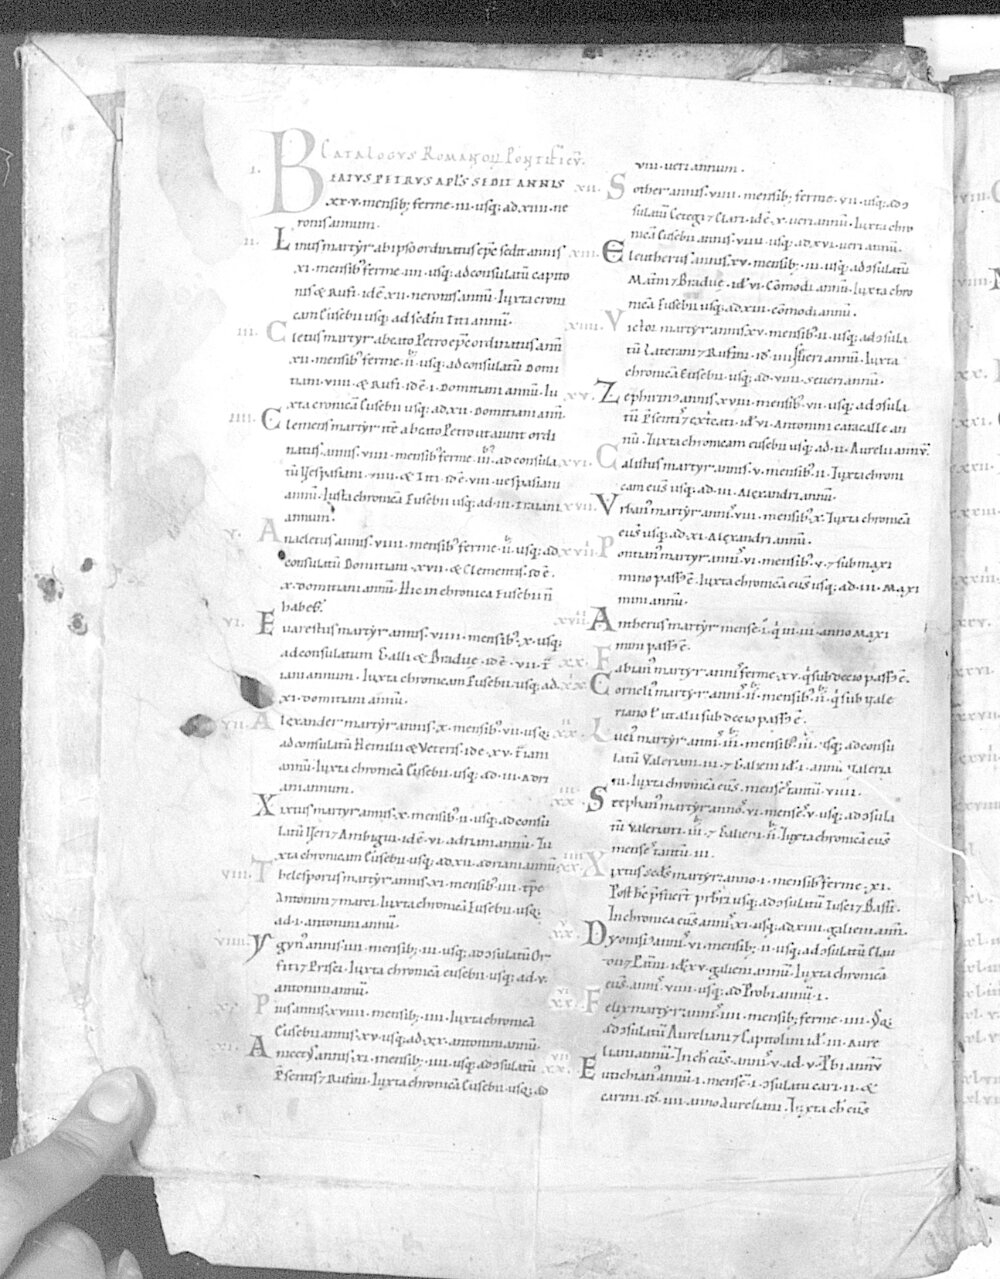 CATALOGVS ROMANOꝜ PONTIFICV̄.
I. BEATVS PETRVS APL̄S SEDIT ANNIS
xx·v·mensib; ferme·iii·usq; ad·xiiii·ne
ronis annum·
ii. Linus martẏr ab ipso ordinatus ep̄c sedit annis
xi·mensib᾽ ferme·iii·usq; ad consulatū capito
nis & Rufi·idē·xii·neronis annū·Iuxta croni
cam Eusebii usq; ad sedm̄ Titi annū·
iii. Cletus martyr a beato Petro ep̄c ordinatus ann̄
xii·mensib᾽ ferme·ii·usq; ad consulatū Domi
tiani·viiii·& Rufi·idē·i·Domitiani annū·Iu
xta cronicā Eusebii usq; ad·xii·Domitiani ann̄·
iiii. Clemens martẏr itē a beato Petro ut aiunt ordi
natus·annis·viiii·mensib᾽ ferme·iii·ad consula
tū Uespasiani·viiii·& Titi·idē·viii·uespasiani
annū·Iusta chronicā Eusebii usq; ad·iii·traiani
annum·
v. Anacletus annis·viiii·mensib᾽ ferme·ii·usq; ad
consulatū Domitiani·xvii·& Clementis·idē·
x·domitiani annū·Hic in chronica Eusebii n̄
habet᾽·
vi. Euarestus martẏr annis·viiii·mensib᾽·x·usq;
ad consulatum Galli & Braduę·idē·vii·t̄
iani annum·Iuxta chronicam Eusebii·usq; ad
xi·domitiani annū·
vii. Alexander martẏr annis·x·mensib᾽·vii·usq;
ad consulatū Hemilii & Veteris·idē·xv·t̄iani
annū·Iuxta chronicā Eusebii·usq; ad·iii·Adri
ani annum·
Xixtus martyr annis·x·mensib᾽·ii·usq; ad consu
latū Ueri⁊ Ambigui·idē·vi·adriani annū·Iu
xta chronicam Eusebii·usq; ad·xii·adriani annū·
viii. Thelesporus martẏr annis·xi·mensib᾽·iii·tp̄e
Antonini⁊ marci·Iuxta chronicā Eusebii·usq;
ad·i·antonini annū·
viiii. Ygyn᾽ annis·iiii·mensib;·iii·usq; ad ɔsulatū Or
fiti⁊ Prisci·Iuxta chronicā eusebii usq; ad·v·
antonini annū·
x. Pius annis·xviii·mensib;·iiii·Iuxta chronicā
Eusebii annis·xv·usq; ad·xx·antonini annū·
xi. Anicet᾽ annis·xi·mensib;·iiii·usq; ad ɔsulatū
P̄sentis⁊ Rufini·Iuxta chronicā Eusebii·usq; ad
viii·ueri annum·
xii. Sother annis·viiii·mensib; ferme·vii·usq; ad ɔ
sulatū Cetegi⁊ Clari·idē·x·ueri annū·Iuxta chro
nicā Eusebii annis·viiii·usq; ad·xvi·ueri annū·
xiii. Eleutherus annis·xv·mensib;·iii·usq; ad ɔsulatū
Mat̄ni⁊ Braduę·id᾽·vi·Cōmodi annū·Iuxta chro
nicā Eusebii usq; ad·xiii·cōmodi annū·
xiiii. Victor martẏr annis·xv·mensib᾽·ii·usq; ad ɔsula
tū Laterani⁊ Rufini·id᾽·iiii seueri annū·Iuxta
chronicā Eusebii·usq; ad·viiii·seueri annū·
xv. Zephirin᾽ annis·xviii·mensib᾽·vii·usq; ad ɔsula
tū P̄senti᾽⁊ ext̄cati·id᾽·vi·Antonini caracalle an
nū·Iuxta chronicam eusebii usq; ad·ii·Aurelii annū·
xvi. Calistus martyr annis·v·mensib᾽·ii·Iuxta chroni
cam eus̄ usq; ad·iii·Alexandri annū·
xvii. Vrban᾽ martẏr annis·viii·mensib᾽·x·Iuxta chronicā
eus̄ usq; ad·xi·Alexandri annū·
xvii. Pontian᾽ martẏr ann᾽·vi·mensib᾽·v·⁊ sub maxi
mino pass᾽ ē·Iuxta chronicā eus̄ usq; ad·iii·Maxi
mini annū·
xvii. Antherus martẏr mense·i·q̄ iii·iii·anno Maxi
mini pass᾽ ē·
xx. Fabian᾽ martẏr ann᾽ ferme·xv·q᾽ sub decio pass᾽ ē·
xx. Corneli᾽ martẏr ann᾽·ii·mensib᾽·ii·q᾽ sub Vale
riano ł ut alii sub decio pass᾽ ē·
xx. Luci᾽ martẏr ann᾽·iii·mensib᾽·iii·usq; ad consu
latū Valeriani·iii·⁊ Galieni id᾽·i·annū Valeria
ni·Iuxta chronicā eus̄·mense᾽ tantū·viii·
xx. Stephan᾽ martẏr anno᾽·vi·mense᾽·v·usq; ad ɔsula
tū Valeriani·iii·⁊ Galieni·ii·Iuxta chronicā eus̄
mense᾽ tantū·iii·
xx. Xixtus sed᾽s martẏr anno·i·mensib᾽ ferme·xi·
Post hę p̄fuer̄t prb̄ri usq; ad ɔsulatū Tusci⁊ Bassi·
In chronica eus̄ ann᾽·xi·usq; ad·xiiii·galieni ann̄·
xx. Dyonisi᾽ ann᾽·vi·mensib;·ii·usq; ad ɔsulatū Clau
dii⁊ Pat̄ni·id᾽·xv·galieni annū·Iuxta chronicā
eus̄·ann᾽·viiii·usq; ad Probi annū·i·
xx. Felix martẏr ann᾽·iiii·mensib; ferme·iiii·
ad ɔsulatū Aureliani⁊ Capitolini id᾽·iii·Aure
liani annū·In ch᾽ eus̄·ann᾽·v·ad·v·Pbi annū
xx. Eutichian᾽ annū·i·mense᾽·i·ɔsulatu cari·ii·&
carini·id᾽·iiii·anno Aureliani·Iuxta ch᾽ eus̄